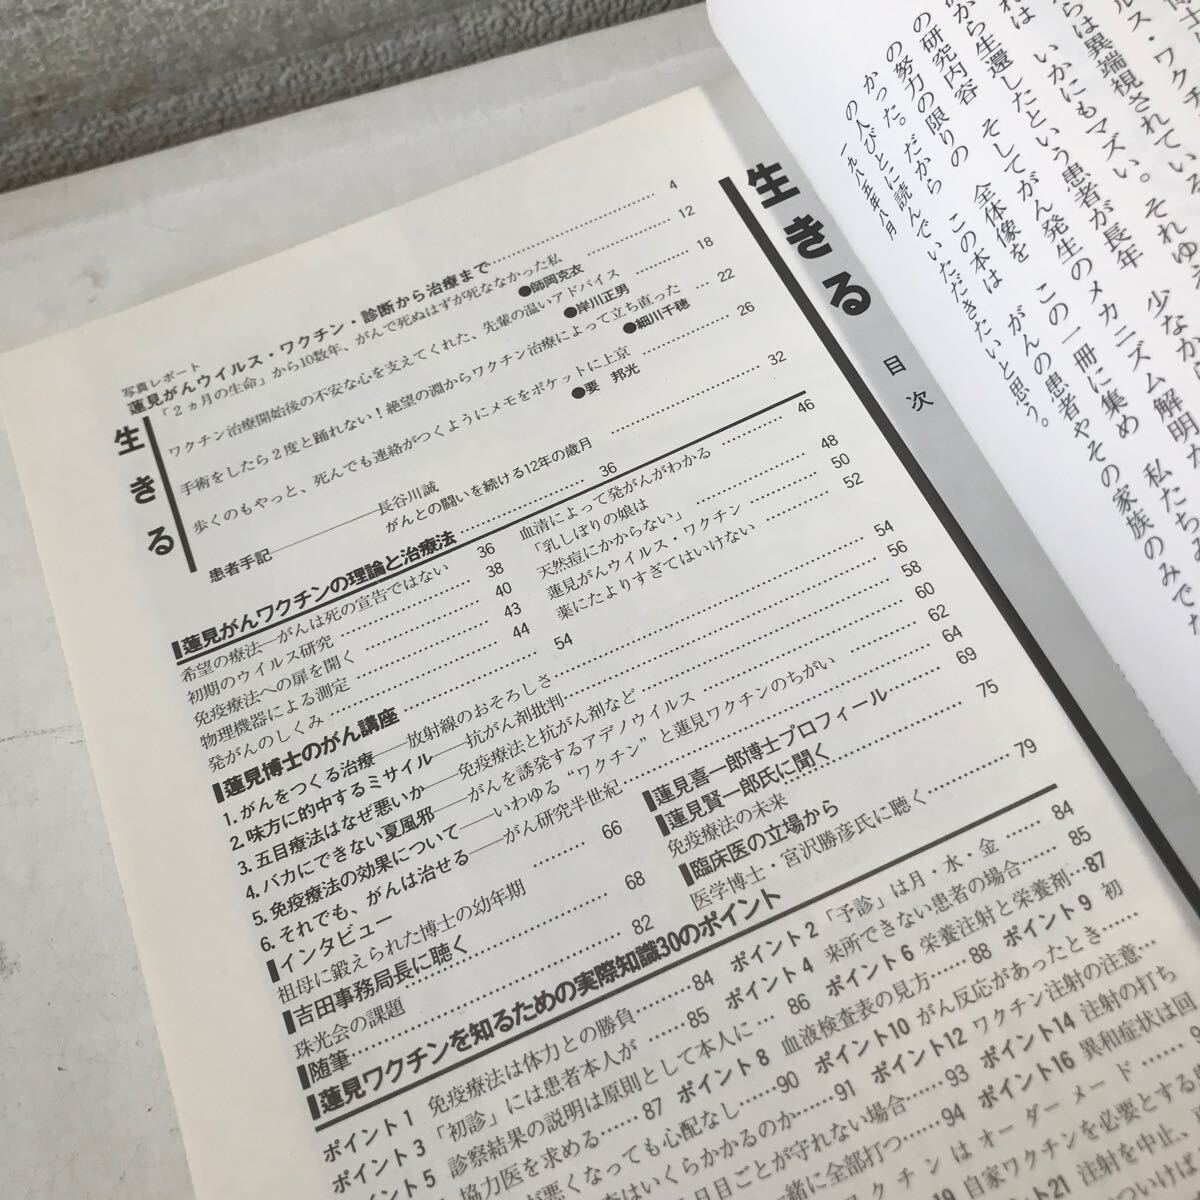 博士
ルス・ワクチ
らは異端視されている
れは、いかにもマズい。それゆえ
から生還したという患者が長年、少なか
の研究内容、そしてがん発生のメカニズム解明が
の努力の限りの、全体像を、この一冊に集め、私たちみ
かった。だから、この本は、がんの患者やその家族のみでな
の人びとに読んでいただきたいと思う。
一九八五年八月
生きる
目次
写真レポート
蓮見がんウイルス・ワクチン・診断から治療まで…… 4
「2ヵ月の生命」から10数年、がんで死ぬはずが死ななかった私 12
●師岡克衣
ワクチン治療開始後の不安な心を支えてくれた、先輩の温いアドバイス 18
●岸川正男
手術をしたら2度と踊れない！絶望の淵からワクチン治療によって立ち直った 22
●細川千穂
歩くのもやっと、死んでも連絡がつくようにメモをポケットに上京 26
●要 邦光
患者手記――長谷川誠
がんとの闘いを続ける12年の歳月 32
生きる
蓮見がんワクチンの理論と治療法…… 36
希望の療法―がんは死の宣告ではない 36
初期のウイルス研究…… 38
免疫療法への扉を開く…… 40
物理機器による測定…… 43
発がんのしくみ…… 44
血清によって発がんがわかる 46
「乳しぼりの娘は
天然痘にかからない」…… 48
蓮見がんウイルス・ワクチン 50
薬にたよりすぎてはいけない 52
蓮見博士のがん講座…… 54
1. がんをつくる治療――放射線のおそろしさ…… 54
2. 味方に的中するミサイル――抗がん剤批判…… 56
3. 五目療法はなぜ悪いか――免疫療法と抗がん剤など…… 58
4. バカにできない夏風邪――がんを誘発するアデノウイルス 60
5. 免疫療法の効果について――いわゆる“ワクチン”と蓮見ワクチンのちがい 62
6. それでも、がんは治せる――がん研究半世紀…… 64
インタビュー
祖母に鍛えられた博士の幼年期…… 66
吉田事務局長に聴く
珠光会の課題…… 68
随筆…… 82
蓮見喜一郎博士プロフィール…… 69
蓮見賢一郎氏に聞く
免疫療法の未来…… 75
臨床医の立場から
医学博士・宮沢勝彦氏に聴く…… 79
蓮見ワクチンを知るための実際知識30のポイント
ポイント1 免疫療法は体力との勝負…… 84
ポイント2 「予診」は月・水・金…… 84
ポイント3 「初診」には患者本人が…… 85
ポイント4 来所できない患者の場合…… 85
ポイント5 診察結果の説明は原則として本人に… 86
ポイント6 栄養注射と栄養剤… 87
協力医を求める…… 87
ポイント8 血液検査表の見方…… 88
ポイント9 初
が悪くなっても心配なし…… 90
ポイント10 がん反応があったとき……
はいくらかかるのか…… 91
ポイント12 ワクチン注射の注意…
日ごとが守れない場合…… 93
ポイント14 注射の打ち
一緒に全部打つ…… 94
ポイント16 異和症状は回
ワクチンはオーダーメード……
19 自家ワクチンを必要とする
21 注射を中止、